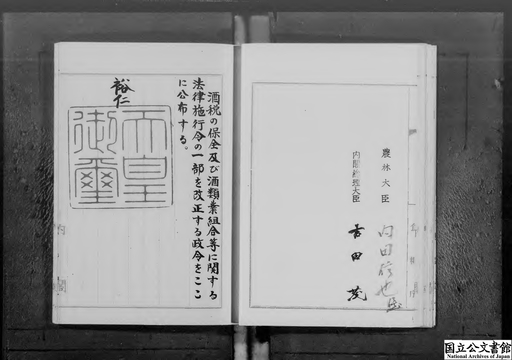 農林大臣
内田信也
内閣総理大臣
吉田茂
酒税の保全及び酒類業組合等に関する
法律施行令の一部を改正する政令をここ
に公布する。
裕仁
天皇
御璽
国立公文書館
National Archives of Japan